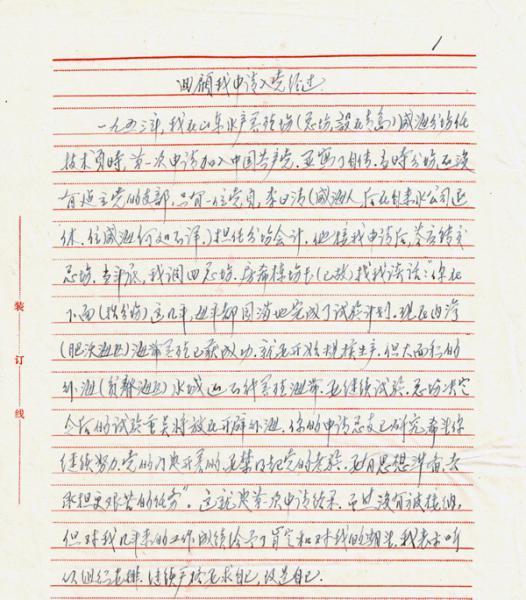 1
回顾我申请入党经过
一九五三年，我在山东水产养殖场（总场设在青岛）威海分场任
技术员时，首次申请加入中国共产党，并写了自传。当时分场还没
有建立党的支部，只有一位党员，李（威海人，后在自来水公司退
休，住威海何处不详）担任分场会计。他接我申请后，答应转交
总场。当年底，我调回总场，房希栋场长（已故）找我谈话："你在
下面（指分场）这几年，每年都圆满地完成了试验计划。现在内湾
（肥沃海区）海带养殖已获成功，就要开始规模生产，但大面积的
外海（贫瘠海区）水域能否种养殖海带，要继续试验。总场决定
今后的试验重点将放在开辟外海。你的申请总支已研究，希望你
继续努力，党的门是开着的，要禁得起党的考验，要有思想准备，去
承担更艰苦的任务"。这就是首次申请结果，虽然没有被接纳，
但对我几年来的工作成绩给予了肯定和对我的期望，我表示听
从组织安排，继续严格要求自己，改造自己。
装
订
线